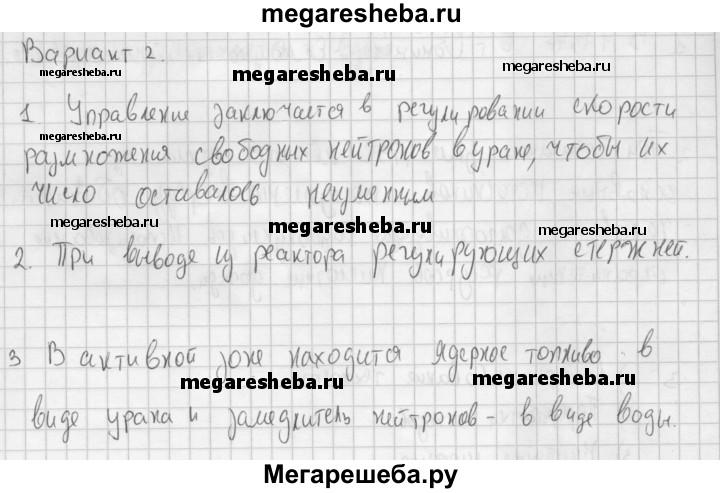 megaresheba.ru
Вариант 2.
megaresheba.ru megaresheba.ru megaresheba.ru
1 Управление заключается в регулировании скорости
megaresheba.ru
размножения свободных нейтронов в уране, чтобы их
число оставалось неизменным
megaresheba.ru megaresheba.ru megaresheba.ru
2. При выводе из реактора регулирующих стержней.
3 В активной зоне находится ядерное топливо в
megaresheba.ru megaresheba.ru
виде урана и замедлитель нейтронов - в виде воды.
Мегарешеба.ру